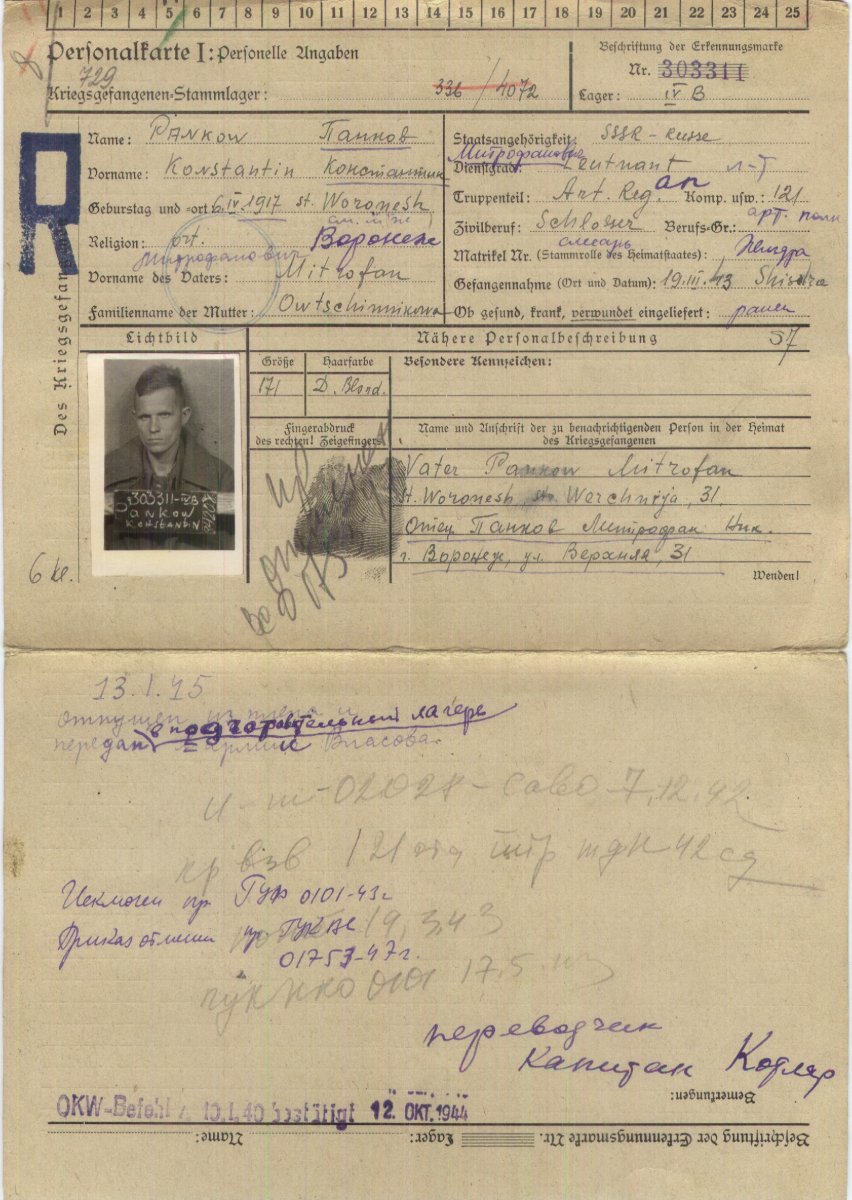 1 2 3 4 5 6 7 8 9 10 11 12 13 14 15 16 17 18 19 20 21 22 23 24 25
Personalkarte I: Personelle Angaben
729
Kriegsgefangenen-Stammlager:
336/4072
Beschriftung der Erkennungsmarke
Nr. 303311
Lager: IV B
R
Des Kriegsgefan
Name: PANKOW Панков
Vorname: Konstantin Константин
Geburtstag und -ort 6.IV.1917 st. Woronesh
Religion: ort. Воронеж
Митрофанович
Vorname des Vaters: Mitrofan
Familienname der Mutter: Owtschinnikowa
Staatsangehörigkeit: SSSR - Russe
Митрофанович
Dienstgrad: Leutnant л-т
Truppenteil: Art. Reg. ап Komp. usw.: 121
арт. полк
Zivilberuf: Schlosser Berufs-Gr.:
слесарь
Matrikel Nr. (Stammrolle des Heimatstaates):
Gefangennahme (Ort und Datum): 19.III.43 Shisdra
Ob gesund, krank, verwundet eingeliefert: ранен
Lichtbild
Nähere Personalbeschreibung
57
Größe
171
Haarfarbe
D. Blond.
Besondere Kennzeichen:
Fingerabdruck
des rechten! Zeigefingers
303311-IVB
Pankow
Konstantin
Name und Anschrift der zu benachrichtigenden Person in der Heimat
des Kriegsgefangenen
Vater Pankow Mitrofan
st. Woronesh, str. Werchnjja, 31.
Отец Панков Митрофан Ник.
г. Воронеж, ул. Верхняя, 31
Wenden!
13.I.45
отпущен из плена и
в подготовительный лагерь
передан армии Власова
02028 7.12.42
121 42 сд
Исключен пр ГУФ 0101-43г
Приказ отменен пр ГУК ВС
19.3.43
01753-47г.
17.5.
переводчик
капитан Котляр
Bemerkungen:
OKW-Befehl 10.1.40 bestätigt 12. OKT. 1944
Name: Lager: Beschriftung der Erkennungsmarke Nr.